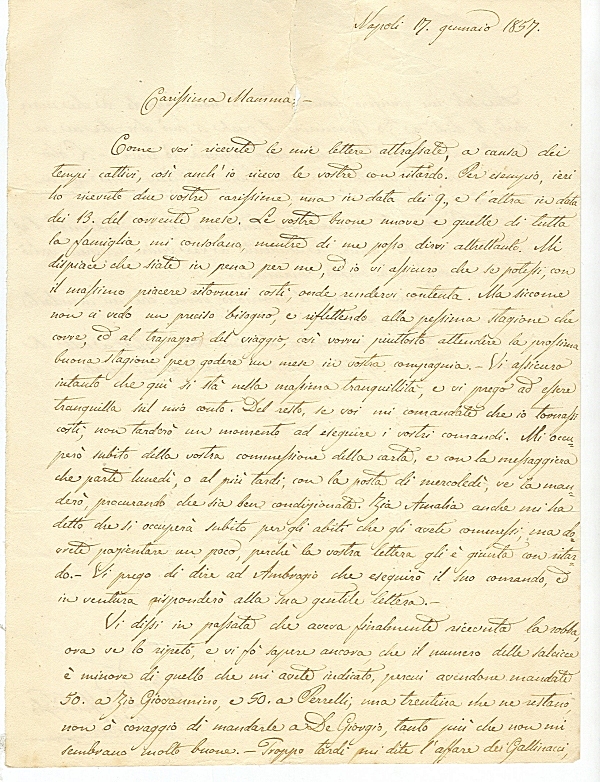 Napoli 17. gennaio 1857.
Carissima Mamma,-
Come voi ricevete le mie lettere attrassate, a causa dei
tempi cattivi, così anch'io ricevo le vostre con ritardo. Per esempio, ieri
ho ricevuto due vostre carissime, una in data dei 9, e l'altra in data
dei 13. del corrente mese. Le vostre buone nuove e quelle di tutta
la famiglia mi consolano, mentre di me posso dirvi altrettanto. Mi
dispiace che siate in pena per me, ed io vi assicuro che se potessi, con
il massimo piacere ritornerei costì, onde rendervi contenta. Ma siccome
non ci vedo un preciso bisogno, e riflettendo alla pessima stagione che
corre, ed al trapazzo del viaggio, così vorrei piuttosto attendere la prossima
buona stagione per godere un mese in vostra compagnia.- Vi assicuro
intanto che quì si stà nella massima tranquillità, e vi prego ad essere
tranquilla sul mio conto. Del resto, se voi mi comandate che io tornassi
costì, non tarderò un momento ad eseguire i vostri comandi. Mi occu-
però subito della vostra commessione della carta, e con la messaggiera
che parte lunedì, o al più tardi, con la posta di mercoledì, ve la man-
derò, procurando che sia ben condizionata. Zia Amalia anche mi ha
detto che si occuperà subito per gli abiti che gli avete commessi, ma do-
vete pazientare un poco, perchè la vostra lettera gli è giunta con ritar-
do.- Vi prego di dire ad Ambrogio che eseguirò il suo comando, ed
in ventura risponderò alla sua gentile lettera.-
Vi dissi in passata che aveva finalmente ricevuta la robba,
ora ve lo ripeto, e vi fò sapere ancora che il numero delle salsicce
è minore di quello che mi avete indicato, percui avendone mandate
50. a Zio Giovannino, e 50. a Perrelli, una trentina che ne restano,
non ò coraggio di mandarle a De Giorgio, tanto più che non mi
sembrano molto buone.- Troppo tardi mi dite l'affare dei Gallinacci,